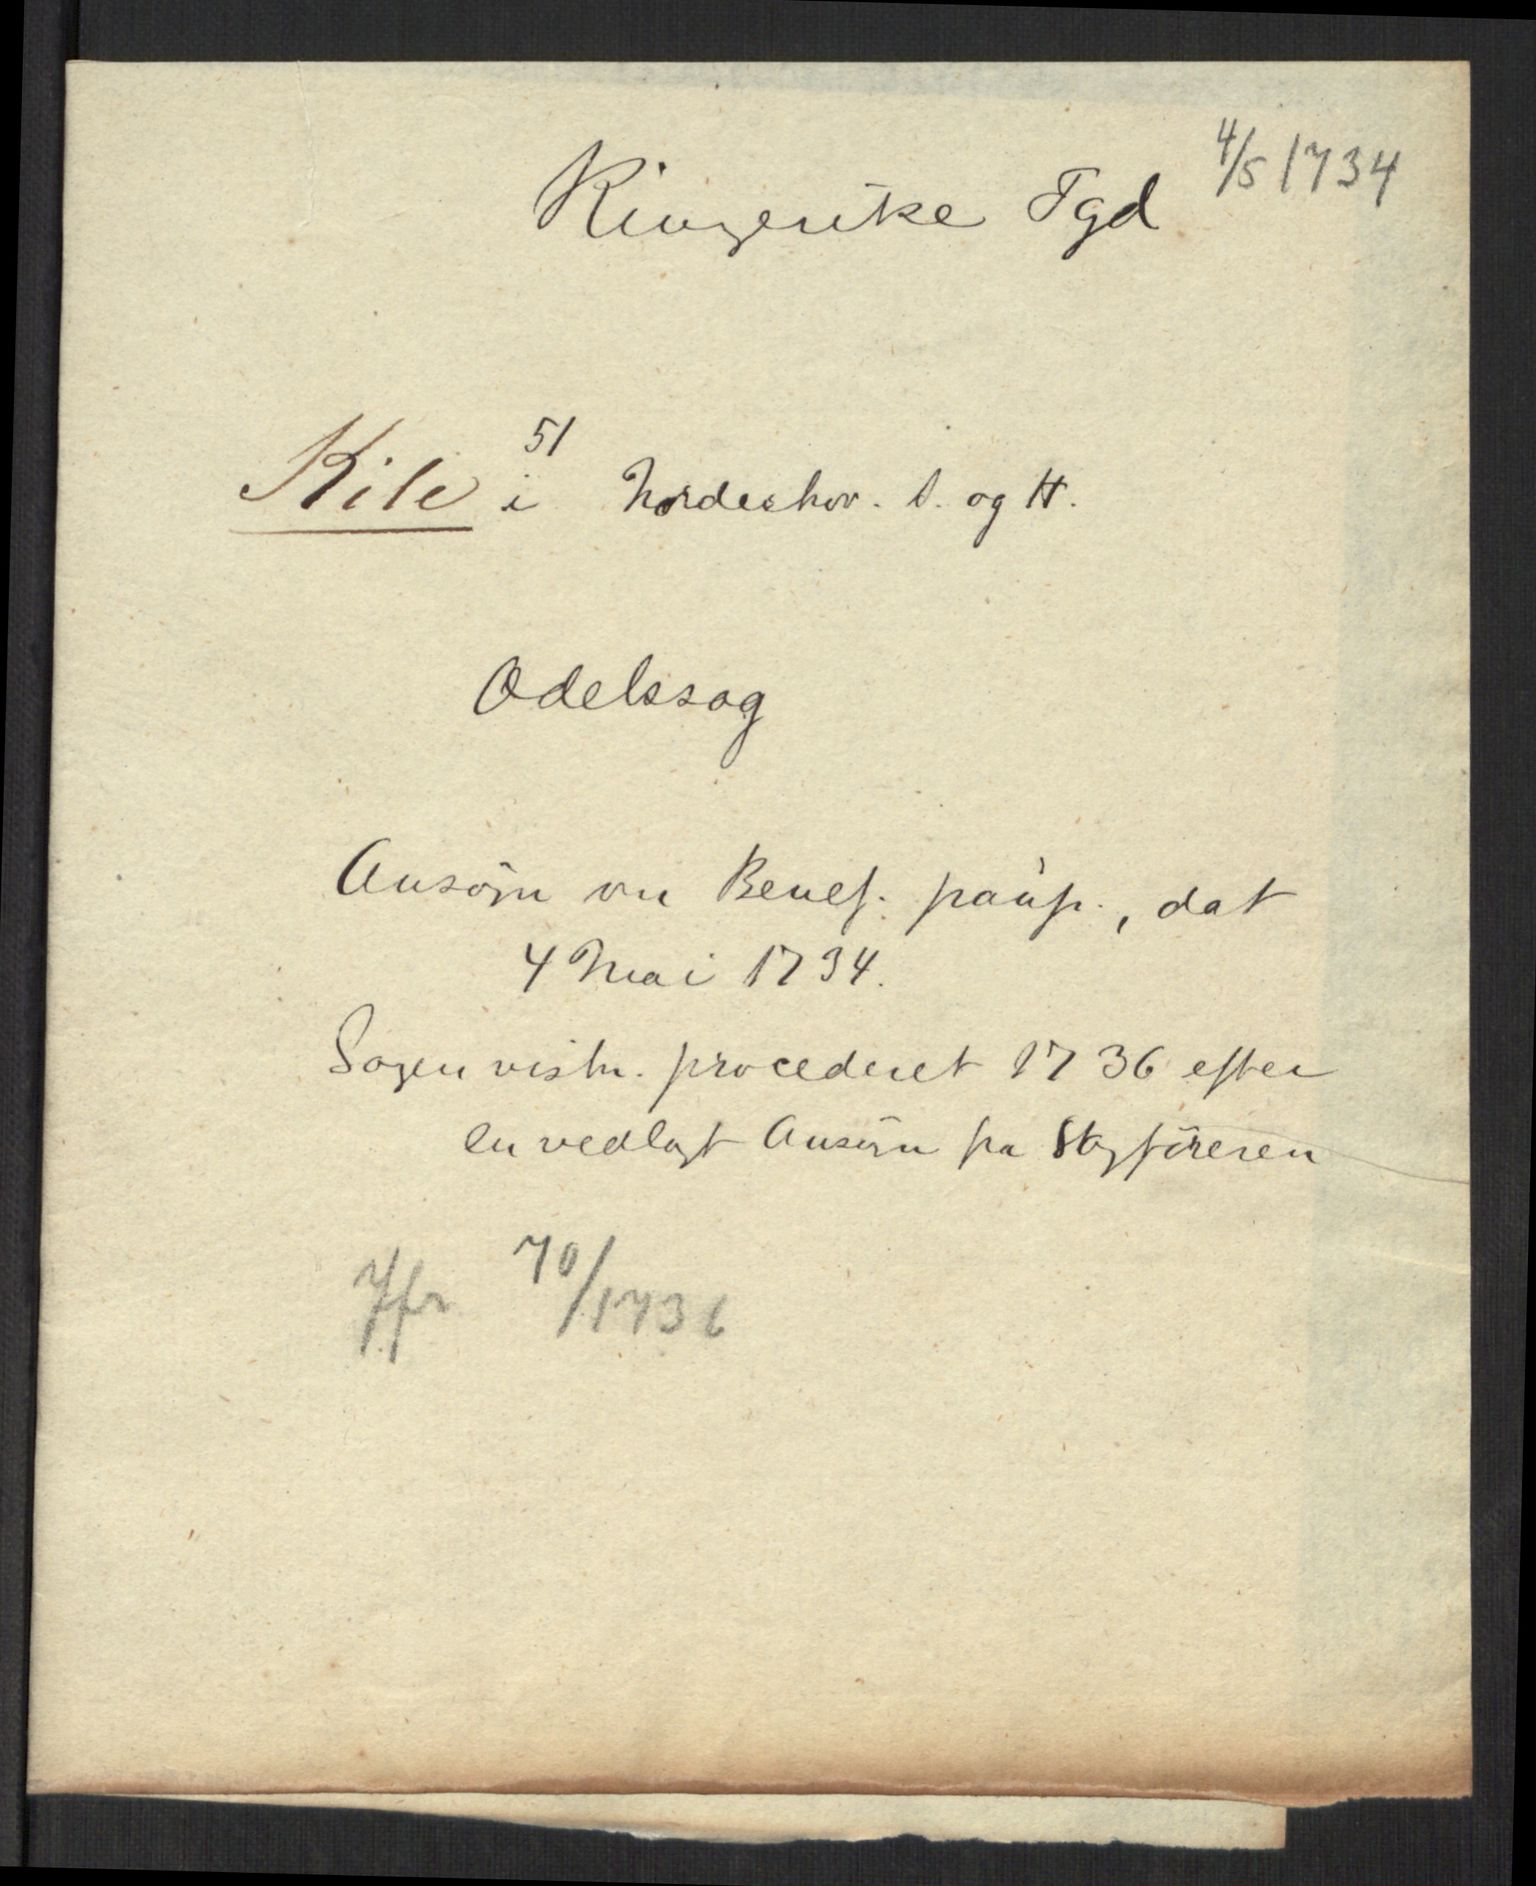 4/5 1734
Ringerike Fgd
51
Kile i Nordeshov. S. og H.
Odelssag
Ansøgn om Benef. paup., dat
4 Mai 1734.
Sagen vistn. procederet 1736 efter
en vedlagt Ansøgn fra Sagföreren
Jfr 70/1736